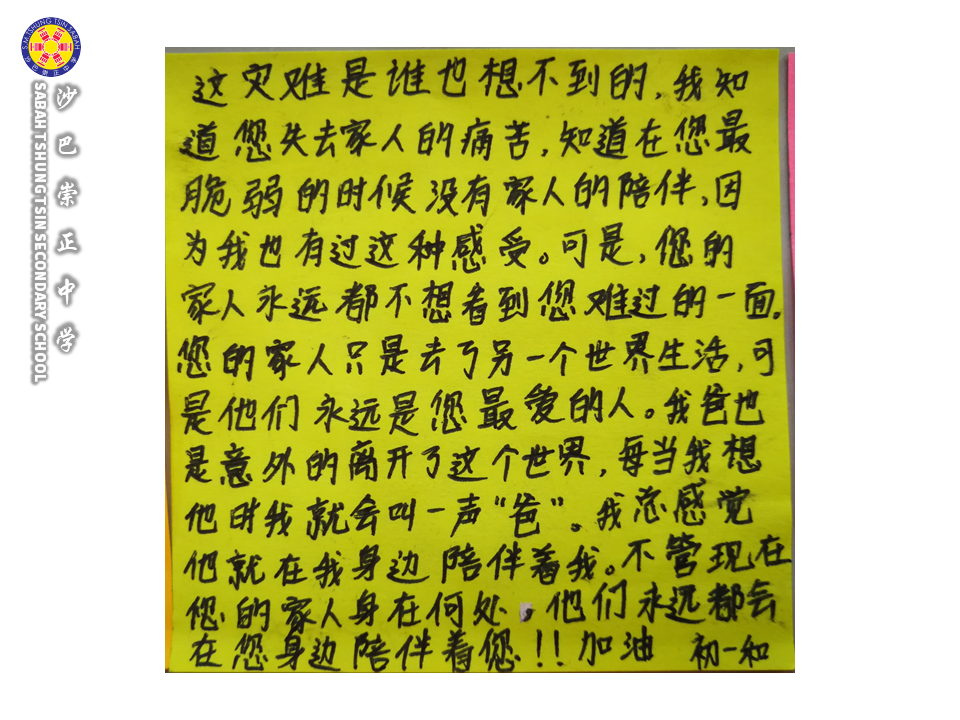 S.M. TSHUNG TSIN SABAH
沙巴崇正中学
沙巴崇正中学
SABAH TSHUNG TSIN SECONDARY SCHOOL
这灾难是谁也想不到的，我知
道您失去家人的痛苦，知道在您最
脆弱的时候没有家人的陪伴，因
为我也有过这种感受。可是，您的
家人永远都不想看到您难过的一面。
您的家人只是去了另一个世界生活，可
是他们永远是您最爱的人。我爸也
是意外的离开了这个世界，每当我想
他时我就会叫一声“爸”。我总感觉
他就在我身边陪伴着我。不管现在
您的家人身在何处，他们永远都会
在您身边陪伴着您!!加油 初一和